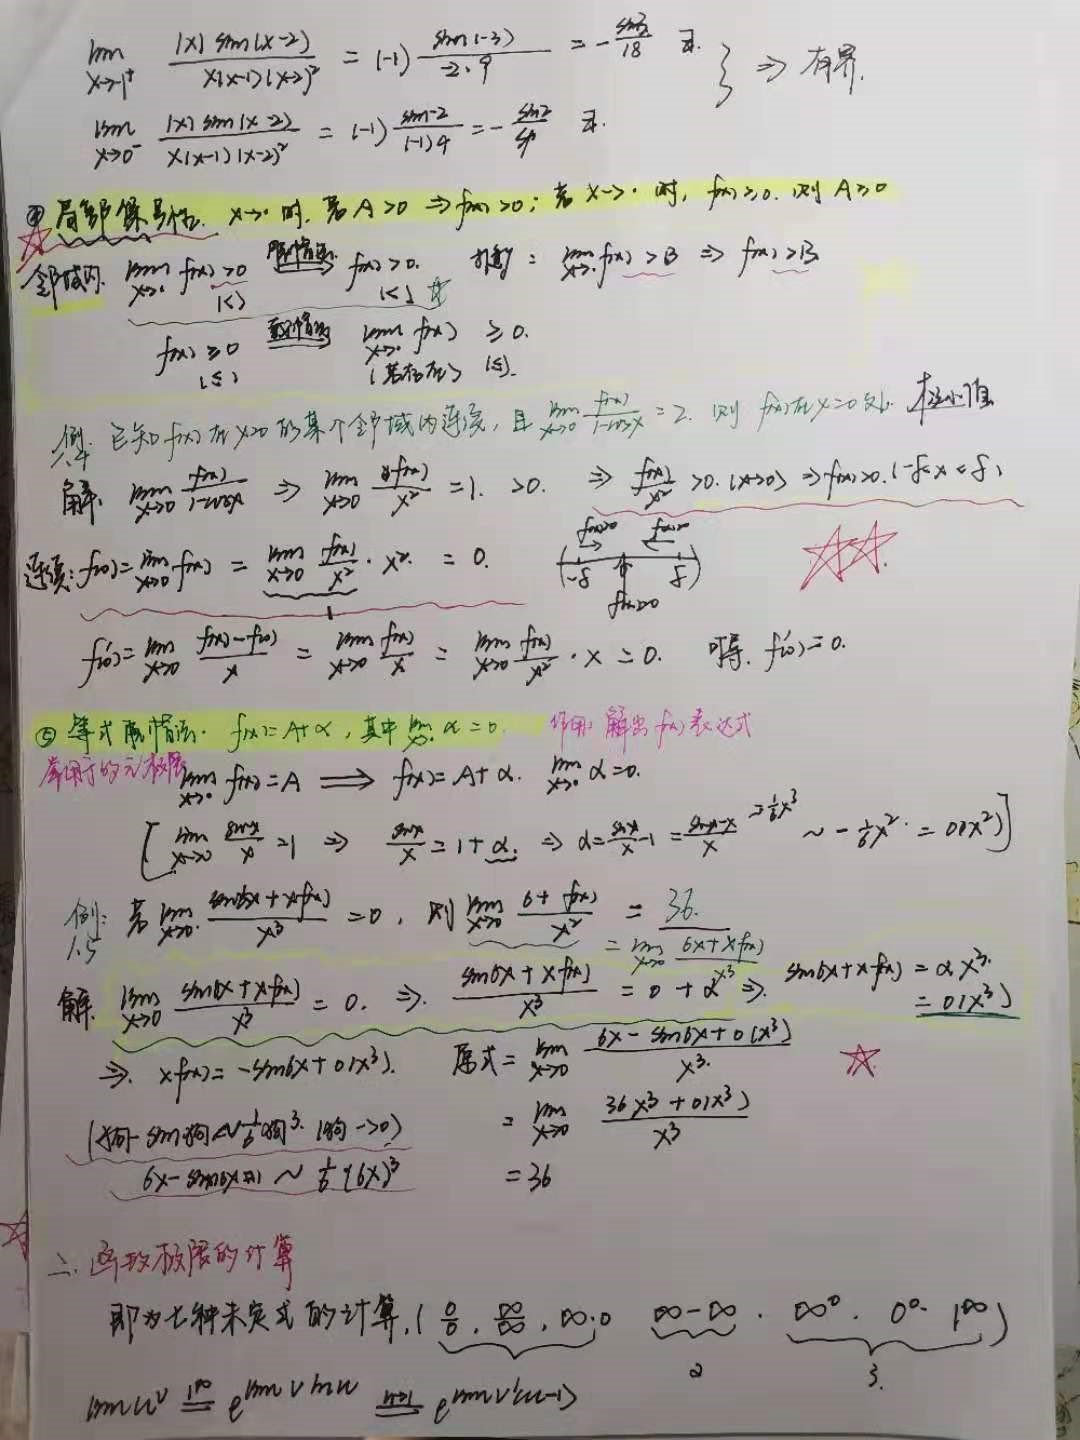 lim x→-1⁺ |x| sin(x-2) / x(x-1)(x-2)² = (-1) sin(-3) / -2·9 = - sin3/18 存.
} ⇒ 有界.
lim x→0⁻ |x| sin(x-2) / x(x-1)(x-2)² = (-1) sin-2 / (-1)4 = - sin2/4 存.
④ 局部保号性. x→· 时, 若 A>0 ⇒ f(x)>0; 若 x→· 时, f(x)≥0. 则 A≥0
邻域内. lim x→· f(x)>0 (<) 脱帽法 ⇒ f(x)>0. (<) : lim x→· f(x)>B ⇒ f(x)>B
f(x)≥0 (≤) 戴帽法 ⇒ lim x→· f(x) ≥0. (若存在) (≤).
例1.4: 已知 f(x) 在 x=0 的某个邻域内连续, 且 lim x→0 f(x)/1-cosx = 2. 则 f(x) 在 x=0 处 极小值
解: lim x→0 f(x)/1-cosx ⇒ lim x→0 f(x)/x² = 1. >0. ⇒ f(x)/x² >0. (x→0) ⇒ f(x)>0. (-δ<x<δ)
连续: f(0) = lim x→0 f(x) = lim x→0 f(x)/x² · x² = 0.
1
f(x)>0 f(x)>0
( -δ δ )
f(x)>0
f'(0) = lim x→0 f(x)-f(0)/x = lim x→0 f(x)/x = lim x→0 f(x)/x² · x = 0. 可导, f'(0)=0.
⑤ 等式脱帽法. f(x)=A+α, 其中 lim x→· α=0. 作用: 解出 f(x) 表达式
lim x→· f(x)=A ⟹ f(x)=A+α. lim x→· α=0.
[ lim x→0 sinx/x = 1 ⇒ sinx/x = 1+α. ⇒ α = sinx/x - 1 = sinx-x/x ~ -1/6x² = o(x²) ]
例1.5: 若 lim x→0 sin6x+xf(x)/x³ = 0, 则 lim x→0 6+f(x)/x² = 36.
= lim x→0 6x+xf(x)/x³
解: lim x→0 sin6x+xf(x)/x³ = 0. ⇒ sin6x+xf(x)/x³ = 0+α ⇒ sin6x+xf(x) = αx³
= o(x³)
⇒ xf(x) = -sin6x+o(x³). 原式 = lim x→0 6x-sin6x+o(x³)/x³
(狗-sin狗 ~ 1/6狗³. (狗→0)) = lim x→0 36x³+o(x³)/x³
6x-sin6x ~ 1/6(6x)³ = 36
二. 函数极限的计算
即为七种未定式的计算. ( 0/0, ∞/∞, ∞·0 ∞-∞. ∞⁰. 0⁰. 1^∞ )
2 3.
lim u^v 1^∞ = e^{lim v lnu} u→1 = e^{lim v(u-1)}